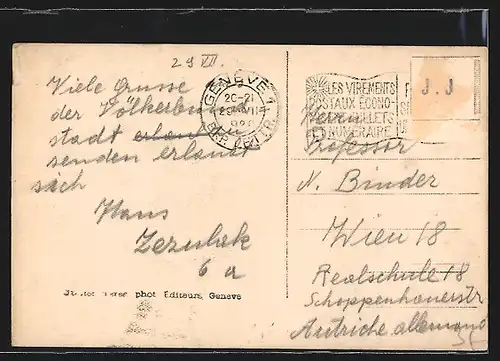 29 VII.
Viele Grüsse
der Völkerbund
stadt erlaubt
senden erlaubt
sich
Hans
Zezulak
6 a
phot Editeurs, Geneve
GENEVE 1
20-21
LES VIREMENTS
POSTAUX ECONO-
BILLETS
NUMERAIRE
J.J
Herrn
Professor
N. Binder
Wien 18
Realschule 18
Schoppenhauerstr
Autriche allemand